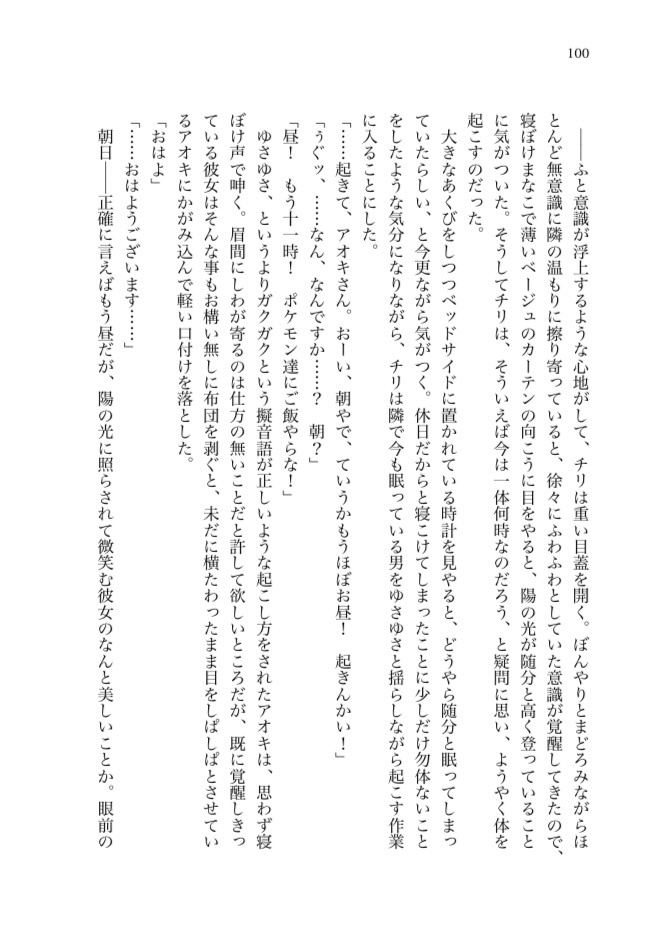 100
――ふと意識が浮上するような心地がして、チリは重い目蓋を開く。ぼんやりとまどろみながらほ
とんど無意識に隣の温もりに擦り寄っていると、徐々にふわふわとしていた意識が覚醒してきたので、
寝ぼけまなこで薄いベージュのカーテンの向こうに目をやると、陽の光が随分と高く登っていること
に気がついた。そうしてチリは、そういえば今は一体何時なのだろう、と疑問に思い、ようやく体を
起こすのだった。
大きなあくびをしつつベッドサイドに置かれている時計を見やると、どうやら随分と眠ってしまっ
ていたらしい、と今更ながら気がつく。休日だからと寝こけてしまったことに少しだけ勿体ないこと
をしたような気分になりながら、チリは隣で今も眠っている男をゆさゆさと揺らしながら起こす作業
に入ることにした。
「……起きて、アオキさん。おーい、朝やで、ていうかもうほぼお昼！　起きんかい！」
「ぅぐッ、……なん、なんですか……？　朝？」
「昼！　もう十一時！　ポケモン達にご飯やらな！」
ゆさゆさ、というよりガクガクという擬音語が正しいような起こし方をされたアオキは、思わず寝
ぼけ声で呻く。眉間にしわが寄るのは仕方の無いことだと許して欲しいところだが、既に覚醒しきっ
ている彼女はそんな事もお構い無しに布団を剥ぐと、未だに横たわったまま目をしぱしぱとさせてい
るアオキにかがみ込んで軽い口付けを落とした。
「おはよ」
「……おはようございます……」
朝日――正確に言えばもう昼だが、陽の光に照らされて微笑む彼女のなんと美しいことか。眼前の